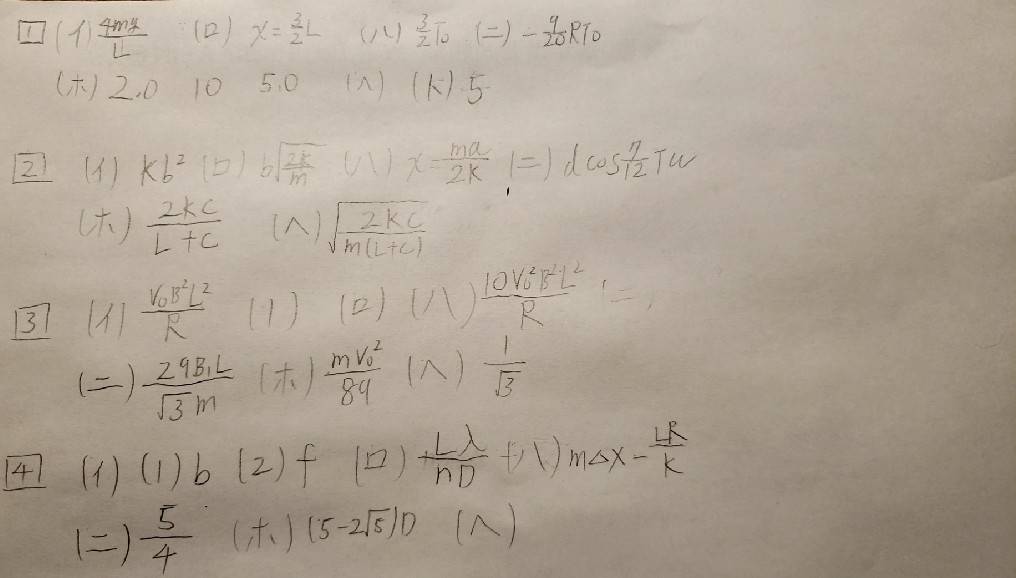 1 (イ) 4my/L (ロ) x=3/2L (ハ) 3/2T₀ (ニ) -9/20RT₀
(ホ) 2.0 10 5.0 (ヘ) (k) 5
2 (イ) kb² (ロ) b√(2k/m) (ハ) x=ma/2k (ニ) dcos7/12πω
(ホ) 2kC/(L+C) (ヘ) √(2kC/m(L+C))
3 (イ) V₀B²L²/R (1) (ロ) (ハ) 10V₀²B²L²/R (ニ)
(ニ) 2qB₁L/√3m (ホ) mV₀²/8q (ヘ) 1/√3
4 (イ) (1) b (2) f (ロ) Lλ/nD (ハ) mΔx-LR/k
(ニ) 5/4 (ホ) (5-2√5)D (ヘ)